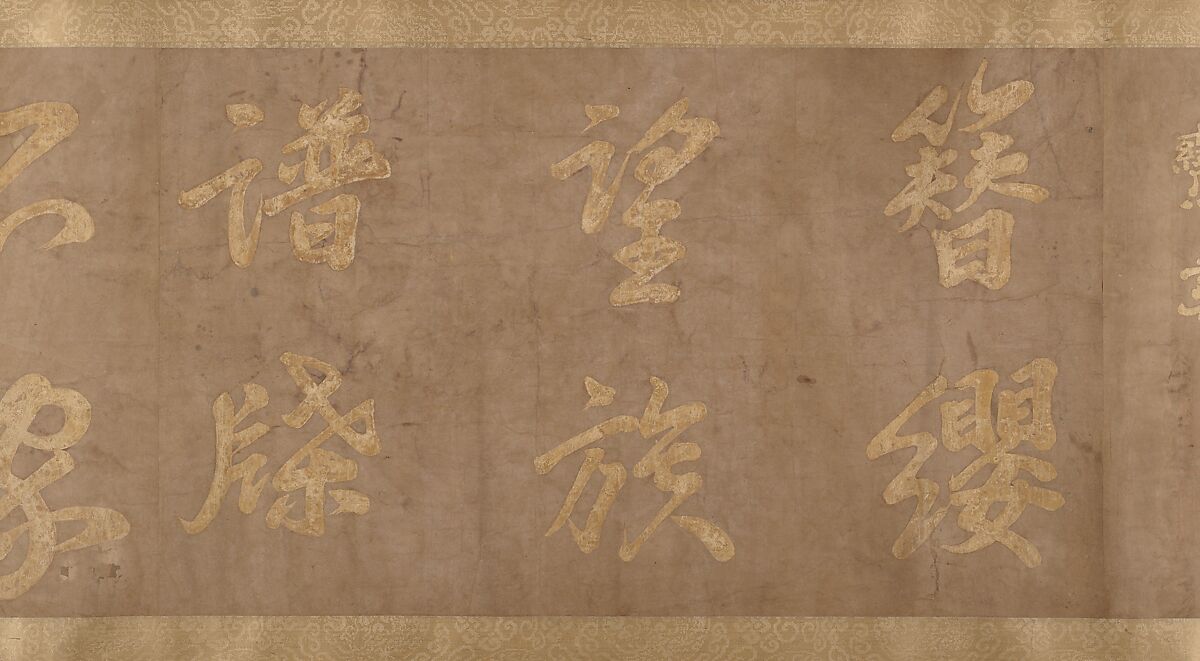 簪纓
望族
譜牒